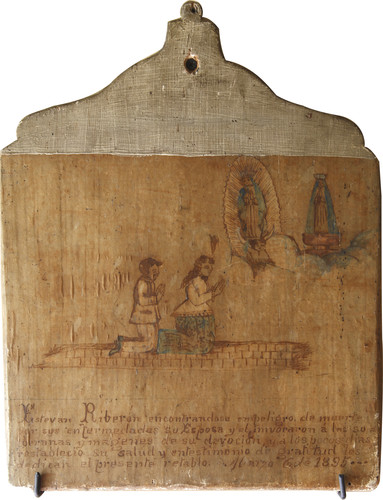 Esteyan Riberan encontrandose en peligro de muerte
por sus enfermedades su Esposa y el invocaron a las so
beranas ymagenes de su devocion y a los
restablecio su salud y entestimonio de gratitud les
dedican el presente retablo. Marzo de 1895